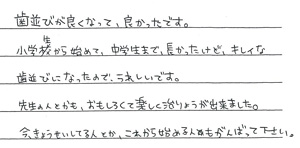 歯並びが良くなって、良かったです。
小学生から始めて、中学生まで、長かったけど、キレイな
歯並びになったので、うれしいです。
先生の人とかも、おもしろくて楽しく治りょうが出来ました。
今、きょうせいしてる人とか、これから始める人もがんばって下さい。